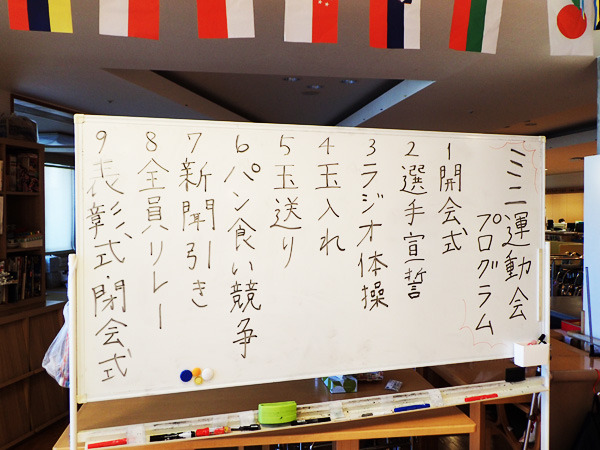 ミニ運動会
プログラム
1 開会式
2 選手宣誓
3 ラジオ体操
4 玉入れ
5 玉送り
6 パン食い競争
7 新聞引き
8 全員リレー
9 表彰式・閉会式